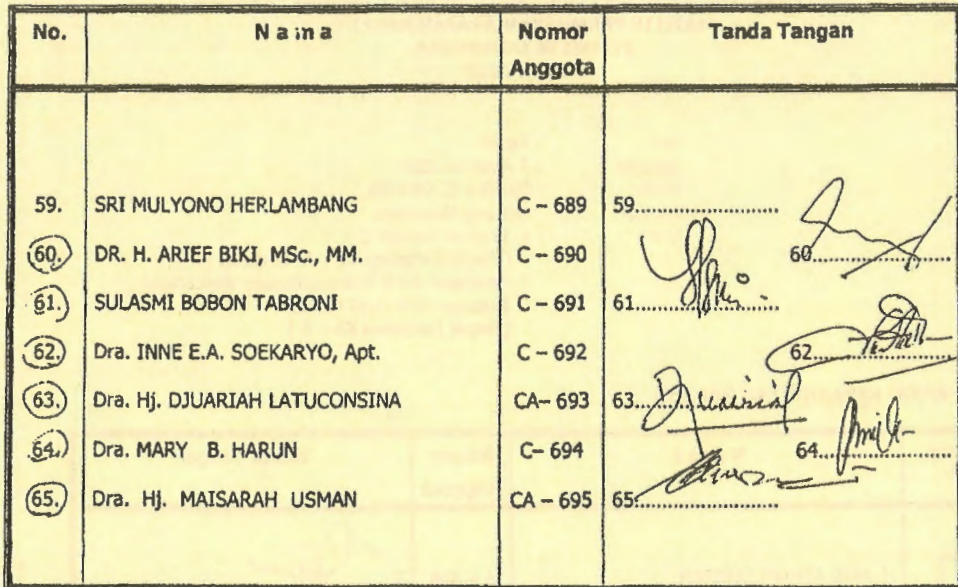 No. Nama Nomor Anggota Tanda Tangan
59. SRI MULYONO HERLAMBANG C – 689 59......................
60. DR. H. ARIEF BIKI, MSc., MM. C – 690 60......................
61. SULASMI BOBON TABRONI C – 691 61......................
62. Dra. INNE E.A. SOEKARYO, Apt. C – 692 62......................
63. Dra. Hj. DJUARIAH LATUCONSINA CA– 693 63......................
64. Dra. MARY B. HARUN C– 694 64......................
65. Dra. Hj. MAISARAH USMAN CA – 695 65......................